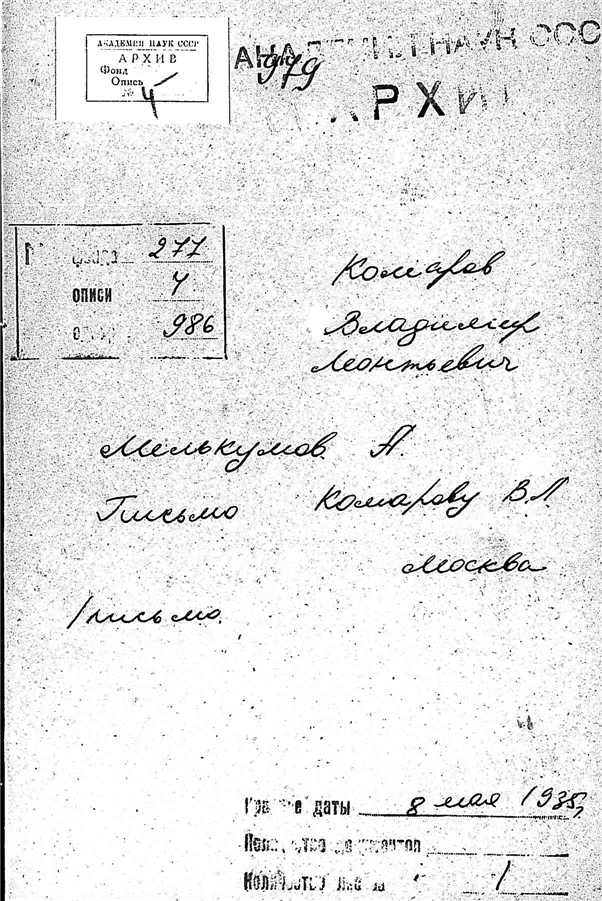 АКАДЕМИЯ НАУК СССР
АРХИВ
Фонд
Опись
№ 4
АКАДЕМИЯ НАУК СССР
979
АРХИВ
277
описи 4
986
Комаров
Владимир
Леонтьевич
Мелькумов А.
Письмо Комарову В.Л.
Москва
1 письмо.
даты 8 мая 1935 г.
Количество 1